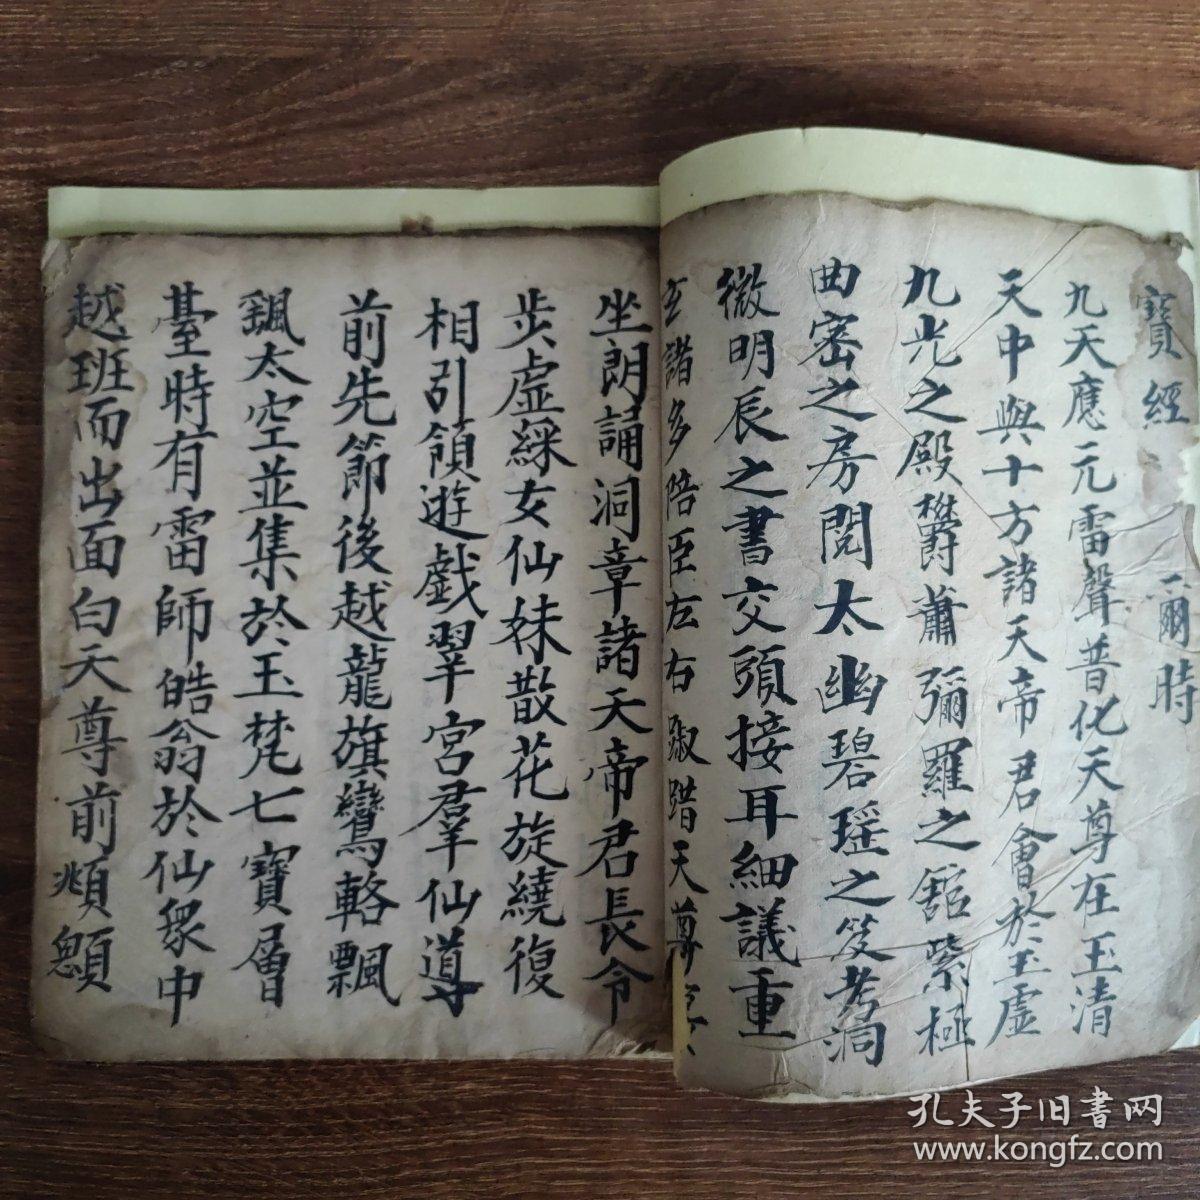 寶經 爾時
九天應元雷聲普化天尊在玉清
天中與十方諸天帝君會於玉虛
九光之殿欝蕭彌羅之舘紫極
曲密之房閱太幽碧瑶之笈考洞
微明辰之書交頭接耳細議重
玄諸多陪臣左右踧踖天尊
坐朗誦洞章諸天帝君長令
步虛綵女仙妹散花旋繞復
相引領遊戲翠宮羣仙導
前先節後越龍旗鸞輅飄
颻太空並集於玉梵七寶層
臺時有雷師皓翁於仙衆中
越班而出面白天尊前頫顖
孔夫子旧书网
www.kongfz.com